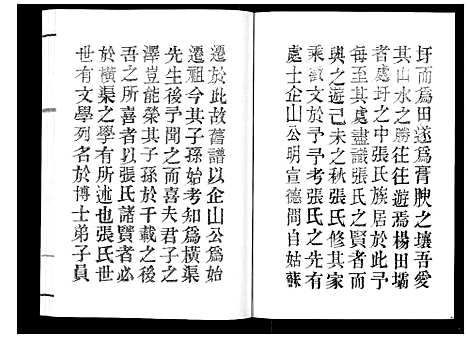 圩而為田遂為膏腴之壤吾愛
其山水之勝往往遊焉楊田壩
者處圩之中張氏族居於此予
每至其處盡識張氏之賢者而
與之遊己未之秋張氏修其家
乘徵文於予予考張氏之先有
處士企山公明宣德間自姑蘇
遷於此故舊譜以企山公為始
遷祖今其子孫始考知為橫渠
先生後予聞之而喜夫君子之
澤豈能榮其子孫於千載之後
吾之所喜者以張氏諸賢者必
於橫渠之學有所述也張氏世
世有文學列名於博士弟子員